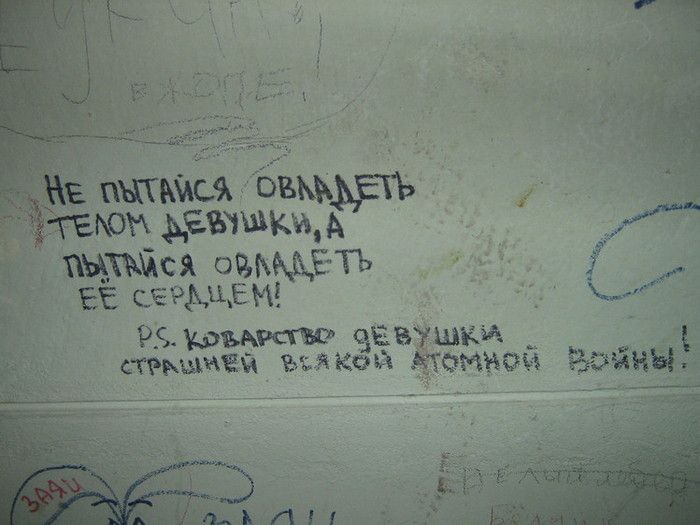 В ЖОПЕ!
НЕ ПЫТАЙСЯ ОВЛАДЕТЬ
ТЕЛОМ ДЕВУШКИ, А
ПЫТАЙСЯ ОВЛАДЕТЬ
ЕЁ СЕРДЦЕМ!
P.S. КОВАРСТВО ДЕВУШКИ
СТРАШНЕЙ ВСЯКОЙ АТОМНОЙ ВОЙНЫ!
ЗАЯЦ